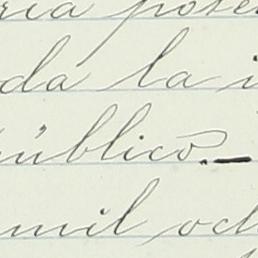 ria pose
da la i
público.—
mil och